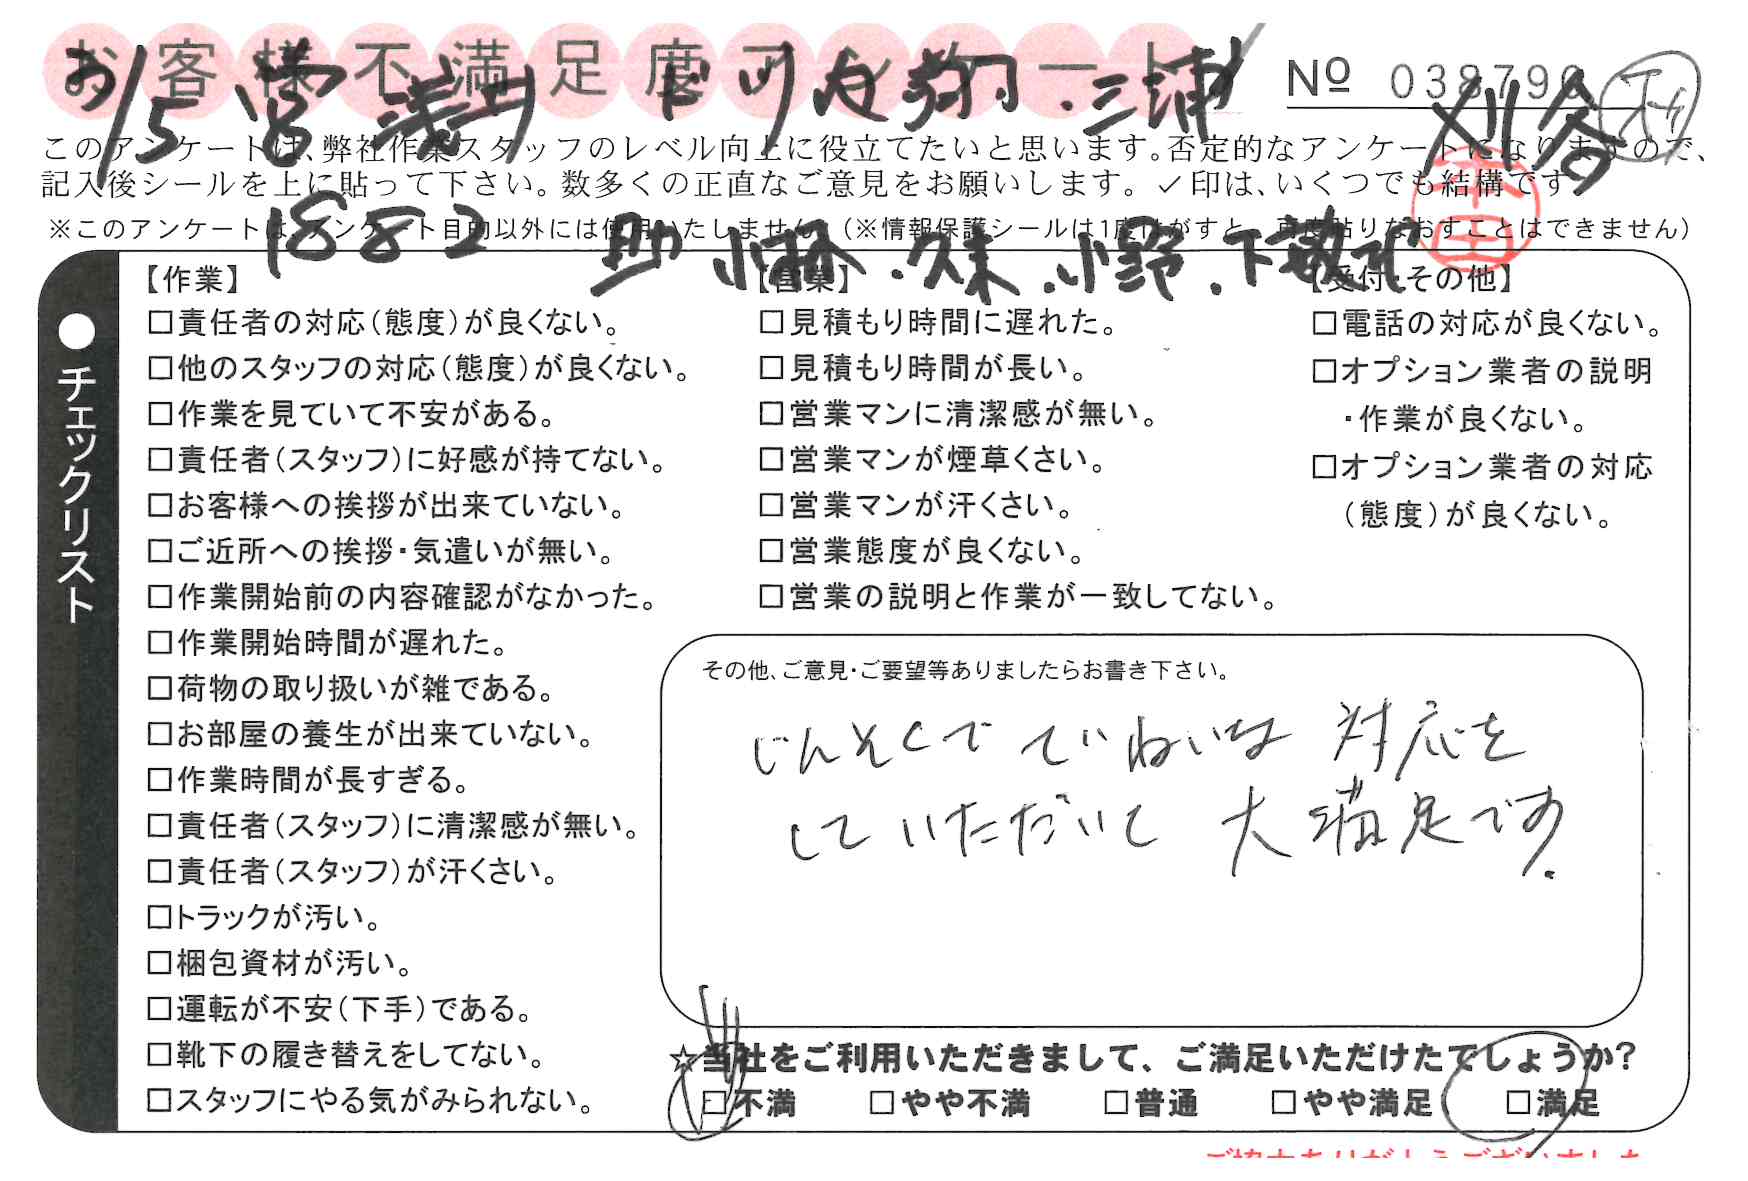 お客様不満足度アンケート
Nº 038790
1/5 宮
下川
三浦
刈谷
このアンケートは、弊社作業スタッフのレベル向上に役立てたいと思います。否定的なアンケートになりますので、
記入後シールを上に貼って下さい。数多くの正直なご意見をお願いします。✓印は、いくつでも結構です。
※このアンケートは、アンケート目的以外には使用いたしません。(※情報保護シールは1度はがすと、再度貼りなおすことはできません)
1882 助 小林・久末・小野・下
●チェックリスト
【作業】
□責任者の対応(態度)が良くない。
□他のスタッフの対応(態度)が良くない。
□作業を見ていて不安がある。
□責任者(スタッフ)に好感が持てない。
□お客様への挨拶が出来ていない。
□ご近所への挨拶・気遣いが無い。
□作業開始前の内容確認がなかった。
□作業開始時間が遅れた。
□荷物の取り扱いが雑である。
□お部屋の養生が出来ていない。
□作業時間が長すぎる。
□責任者(スタッフ)に清潔感が無い。
□責任者(スタッフ)が汗くさい。
□トラックが汚い。
□梱包資材が汚い。
□運転が不安(下手)である。
□靴下の履き替えをしてない。
□スタッフにやる気がみられない。
【営業】
□見積もり時間に遅れた。
□見積もり時間が長い。
□営業マンに清潔感が無い。
□営業マンが煙草くさい。
□営業マンが汗くさい。
□営業態度が良くない。
□営業の説明と作業が一致してない。
【受付・その他】
□電話の対応が良くない。
□オプション業者の説明
・作業が良くない。
□オプション業者の対応
(態度)が良くない。
その他、ご意見・ご要望等ありましたらお書き下さい。
じんそくで ていねいな 対応を
していただいて 大満足です.
☆当社をご利用いただきまして、ご満足いただけたでしょうか?
□不満 □やや不満 □普通 □やや満足 □満足
ご協力ありがとうございました